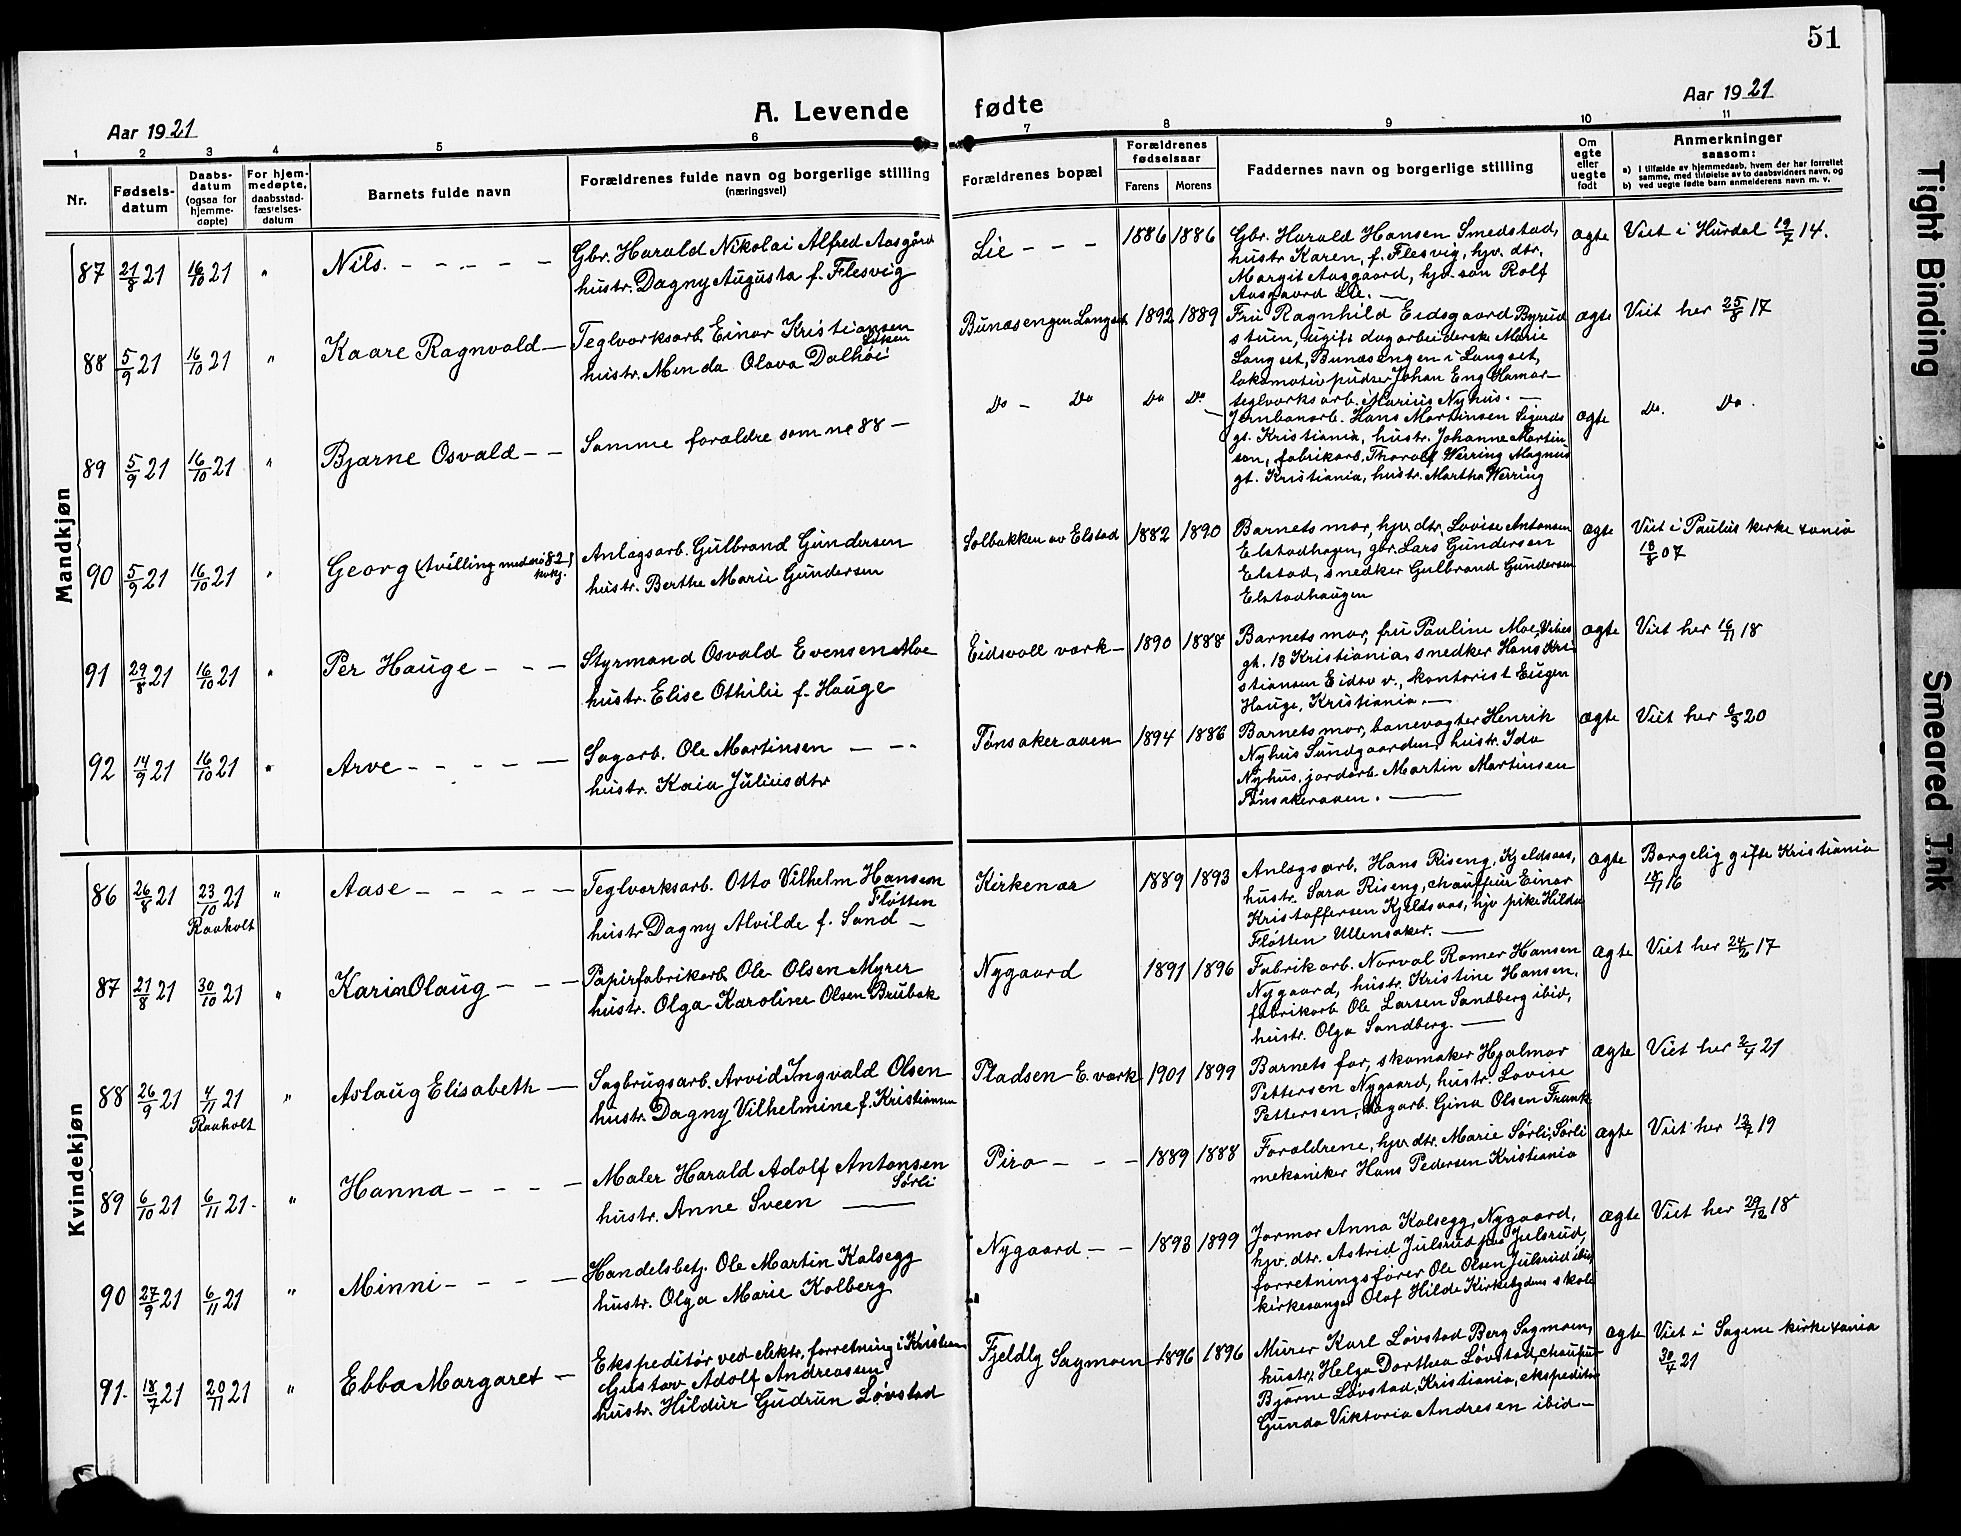 51
A. Levende fødte
Aar 1921
Aar 1921
1 2 3 4 5 6 7 8 9 10 11
Nr.
Fødsels-
datum
Daabs-
datum
(ogsaa for
hjemme-
døpte)
For hjem-
medøpte,
daabsstad-
fæstelses-
datum
Barnets fulde navn
Forældrenes fulde navn og borgerlige stilling
(næringsvei)
Forældrenes bopæl
Forældrenes
fødselsaar
Farens
Morens
Faddernes navn og borgerlige stilling
Om
egte
eller
uegte
født
Anmerkninger
saasom:
a) i tilfælde av hjemmedaab, hvem der har forrettet
samme, med tilføielse av to daabsvidners navn, og
b) ved uegte fødte barn anmelderens navn m. v.
Mandkjøn
87 21/8 21 16/10 21 " Nils. - - - - -
Gbr. Harald Nikolai Alfred Aasgård
hustr. Dagny Augusta f. Flesvig
Lie - - - 1886 1886
Gbr. Harald Hansen Smedstad,
hustr Karen, f. Flesvig, hjv. dtr.
Margit Aasgaard, hjv. søn Rolf
Aasgaard Lie. —
ægte Viet i Hurdal 19/7 14.
88 5/9 21 16/10 21 " Kaare Ragnvald —
Teglverksarb. Einar Kristiansen
hustr. Menda Olava Dalhøi
Bunæsengen Langset 1892 1889
Fru Ragnhild Eidsgaard Byrud
stuen, ugift dagarbeiderske Marie
Langset, Bunæsengen i Langset,
lokomotivpudser Johan Eng Hamar —
teglverksarb. Marius Nyhus. —
ægte Viet her 25/8 17
89 5/9 21 16/10 21 " Bjarne Osvald - -
Samme forældre som nr 88 —
Do - Do Do Do
Jernbanarb. Hans Martinsen Sigurds
gt. Kristiania, hustr. Johanne Martin
sen, fabrikarb. Thoralf Werring Magnus
gt. Kristiania, hustr. Martha Werring
ægte Do. Do.
90 5/9 21 16/10 21 " Georg (tvilling med nr 82
kvkj.
Anlægsarb. Gulbrand Gundersen
hustr. Berthe Marie Gundersen
Solbakken av Elstad 1882 1890
Barnets mor, hjv. dtr. Lovise Antonsen
Elstadhagen, gbr. Lars Gundersen
Elstad, snedker Gulbrand Gundersen
Elstadhaugen
ægte Viet i Paulus kirke x ania
18/8 07
91 29/8 21 16/10 21 " Per Hauge - - -
Styrmand Osvald Evensen Moe
hustr. Elise Othilie f. Hauge
Eidsvoll verk - 1890 1888
Barnets mor, fru Pauline Moe, Vibes
gt. 18 Kristiania, snedker Hans Kri-
stiansen Eidsv v., kontorist Eugen
Hauge, Kristiania. —
ægte Viet her 16/11 18
92 14/9 21 16/10 21 " Arve - - - - -
Sagarb. Ole Martinsen - - -
hustr. Kaia Juliusdtr
Tønsakeraaen 1894 1886
Barnets mor, banevogter Henrik
Nyhus Sundgaarden, hustr. Ida
Nyhus, jordarb. Martin Martinsen
Tønsakeraaen. —
ægte Viet her 6/3 20
Kvindekjøn
86 26/8 21 23/10 21 " Aase - - - - -
Raaholt
Teglverksarb. Otto Vilhelm Hansen
Fløtten
hustr Dagny Alvilde f. Sand —
Kirkenær 1889 1893
Anlægsarb. Hans Riseng, Kjeldsaas,
hustr. Sara Riseng, chauffeur Einar
Kristoffersen Kjeldsaas, hjv pike Hilda
Fløtten Ullensaker. —
ægte Borgelig gifte Kristiania
18/11 16
87 21/8 21 30/10 21 " Karin Olaug - - -
Papirfabrikarb. Ole Olsen Myrer
hustr. Olga Karoline Olsen Brubak
Nygaard 1891 1896
Fabrikarb. Norval Romer Hansen
Nygaard, hustr. Kristine Hansen,
fabrikarb Ole Larsen Sandberg ibid,
hustr. Olga Sandberg. —
ægte Viet her 24/2 17
88 26/9 21 4/11 21 " Aslaug Elisabeth —
Raaholt
Sagbrugsarb. Arvid Ingvald Olsen
hustr. Dagny Vilhelmine f. Kristiansen
Pladsen E. verk 1901 1899
Barnets far, skomaker Hjalmar
Pettersen Nygaard, hustr. Lovise
Pettersen, dagarb. Gina Olsen Frank
ægte Viet her 2/4 21
89 6/10 21 6/11 21 - " Hanna - - - -
Maler Harald Adolf Antonsen
Sørli
hustr. Anne Sveen —
Piro - - - 1889 1888
Forældrene, hjv. dtr. Marie Sørli, Sørli
mekaniker Hans Pedersen Kristiania
ægte Viet her 12/7 19
90 27/9 21 6/11 21 " Minni - - - -
Handelsbetj. Ole Martin Kalsegg
hustr. Olga Marie Kolberg
Nygaard - - 1893 1899
Jormor Anna Kalsegg, Nygaard,
hjv. dtr. Astrid Julsrud paa Julsrud,
forretningsfører Ole Olsen Julsrud ibid
kirkesanger Olaf Hilde Kirkebygdens skole
ægte Viet her 29/12 18
91. 18/7 21 20/11 21 " Ebba Margaret —
Ekspeditør ved elektr. forretning i Kristiania
Gustav Adolf Andreasen
hustr. Hildur Gudrun Løvstad
Fjeldly Sagmoen 1896 1896
Murer Karl Løvstad Berg Sagmoen,
hustr. Helga Dorthea Løvstad, chauffør
Bjarne Løvstad, Kristiania, ekspeditør
Gunda Viktoria Andresen ibid. —
ægte Viet i Sagene kirke x ania
30/4 21
Tight Binding
Smeared Ink